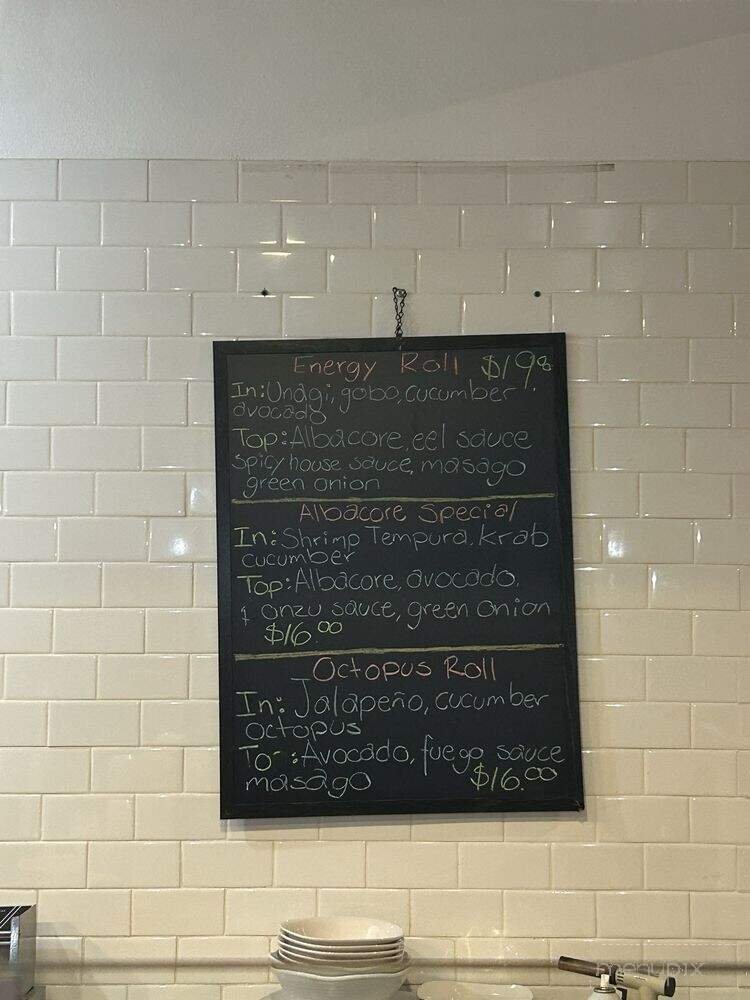 Energy Roll $19.
In: Unagi, gobo, cucumber
avocado
Top: Albacore, eel sauce
spicy house sauce, masago
green onion
Albacore Special
In: Shrimp Tempura, Krab
cucumber
Top: Albacore, avocado,
onzu sauce, green onion
$16.00
Octopus Roll
In: Jalapeño, cucumber
octopus
To :Avocado, fuego sauce
masago $16.00
menupix